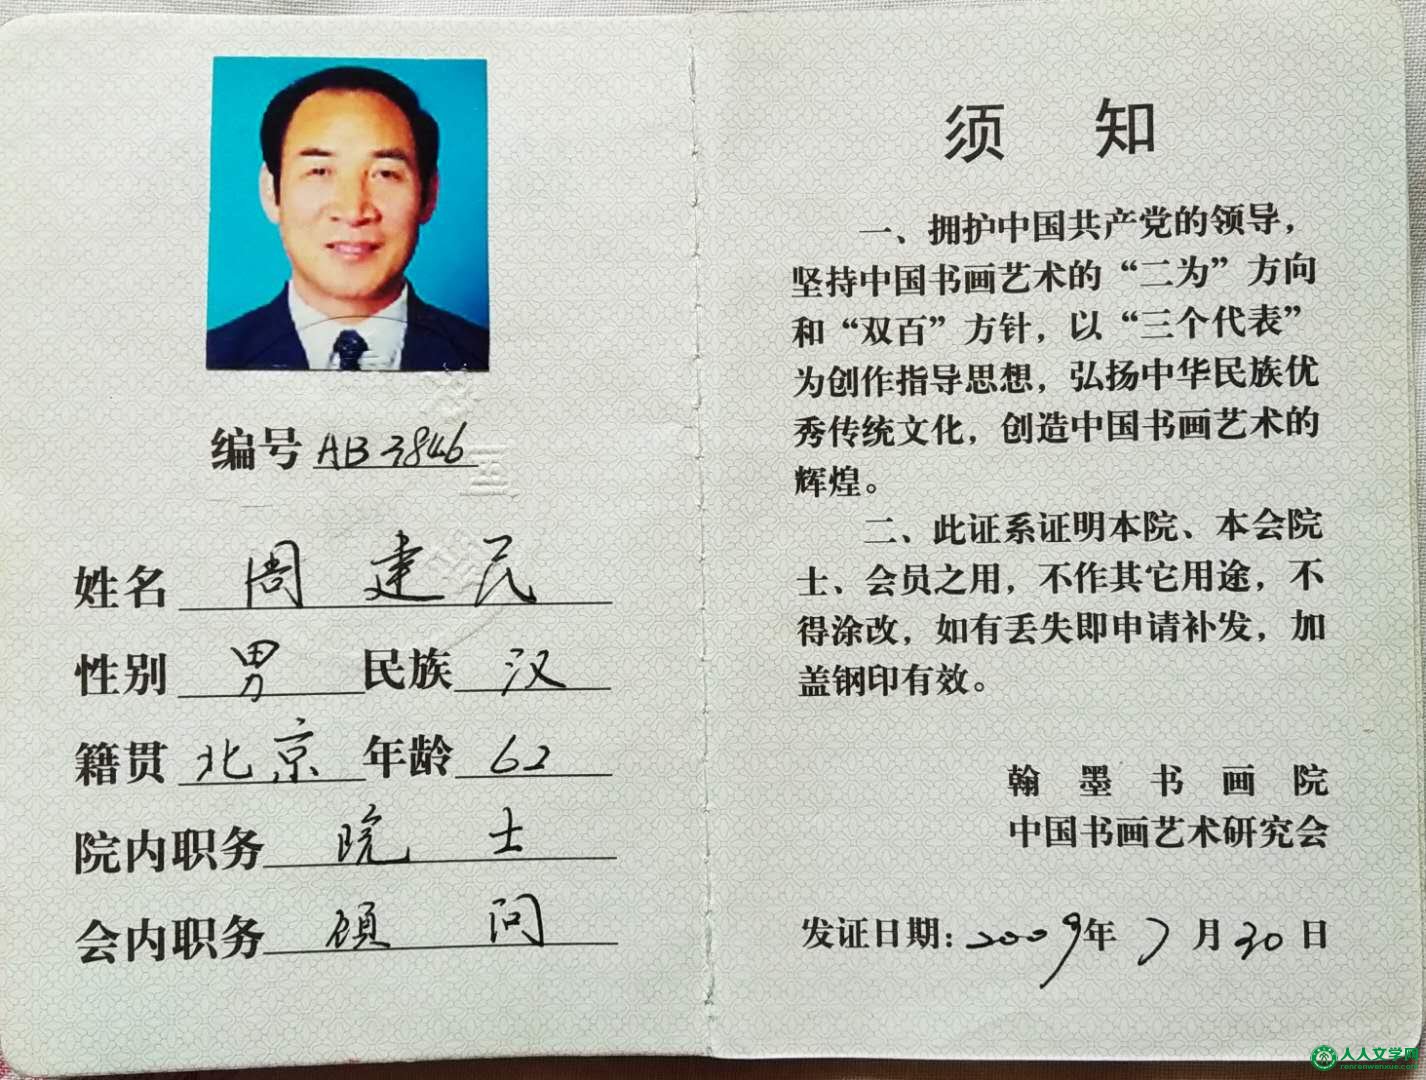 编号 AB3846
姓名 周建民
性别 男 民族 汉
籍贯 北京 年龄 62
院内职务 院士
会内职务 顾问
须知
一、拥护中国共产党的领导，
坚持中国书画艺术的“二为”方向
和“双百”方针，以“三个代表”
为创作指导思想，弘扬中华民族优
秀传统文化，创造中国书画艺术的
辉煌。
二、此证系证明本院、本会院
士、会员之用，不作其它用途，不
得涂改，如有丢失即申请补发，加
盖钢印有效。
翰墨书画院
中国书画艺术研究会
发证日期：2009年7月30日
人人文学网
renrenwenxue.com